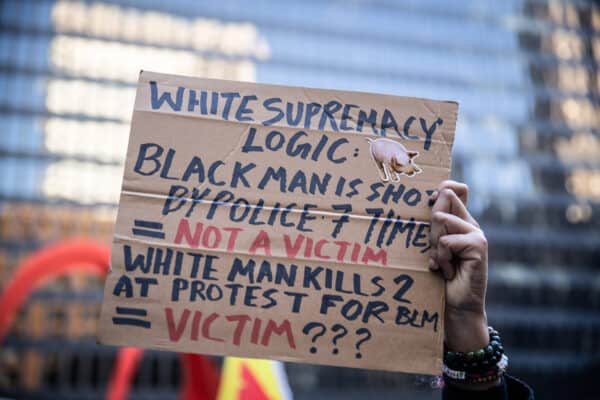 WHITE SUPREMACY
LOGIC:
BLACK MAN IS SHOT
BY POLICE 7 TIMES
= NOT A VICTIM
WHITE MAN KILLS 2
AT PROTEST FOR BLM
= VICTIM ???